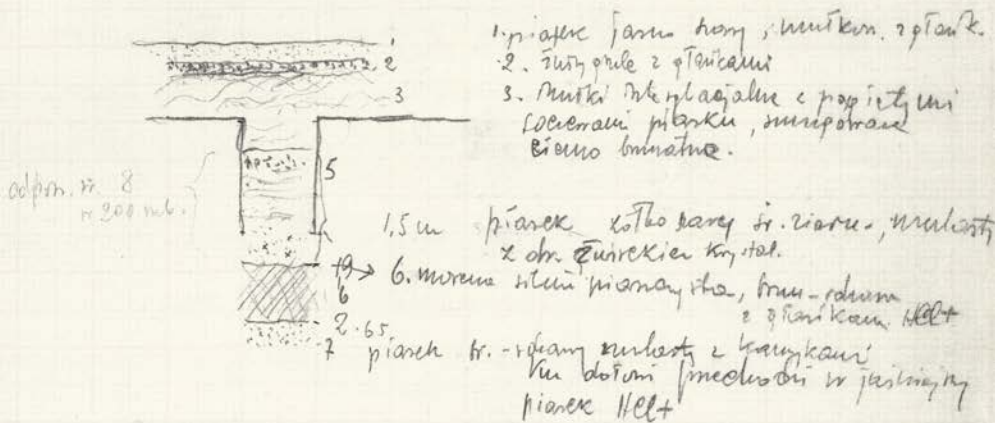 1. piasek jasno szary, mułkow. z głazik.
2. żwiry grube z głazikami
3. Mułki interglacjalne z pogiętymi
soczewkami piasku, smugowane
ciemno brunatne.
1
2
3
5
odpow. nr. 8
w 200 mb.
1,5 m piasek żółto szary śr. ziarn., mulasty
z okr. żwirekiem krystal.
1,9 → 6. morena silnie piaszczysta, brun-
z głazikami HCl+
6
2.65
7 piasek br. - mulasty z kamykami
Ku dołowi przechodzi w jaśniejszy
piasek HCl+